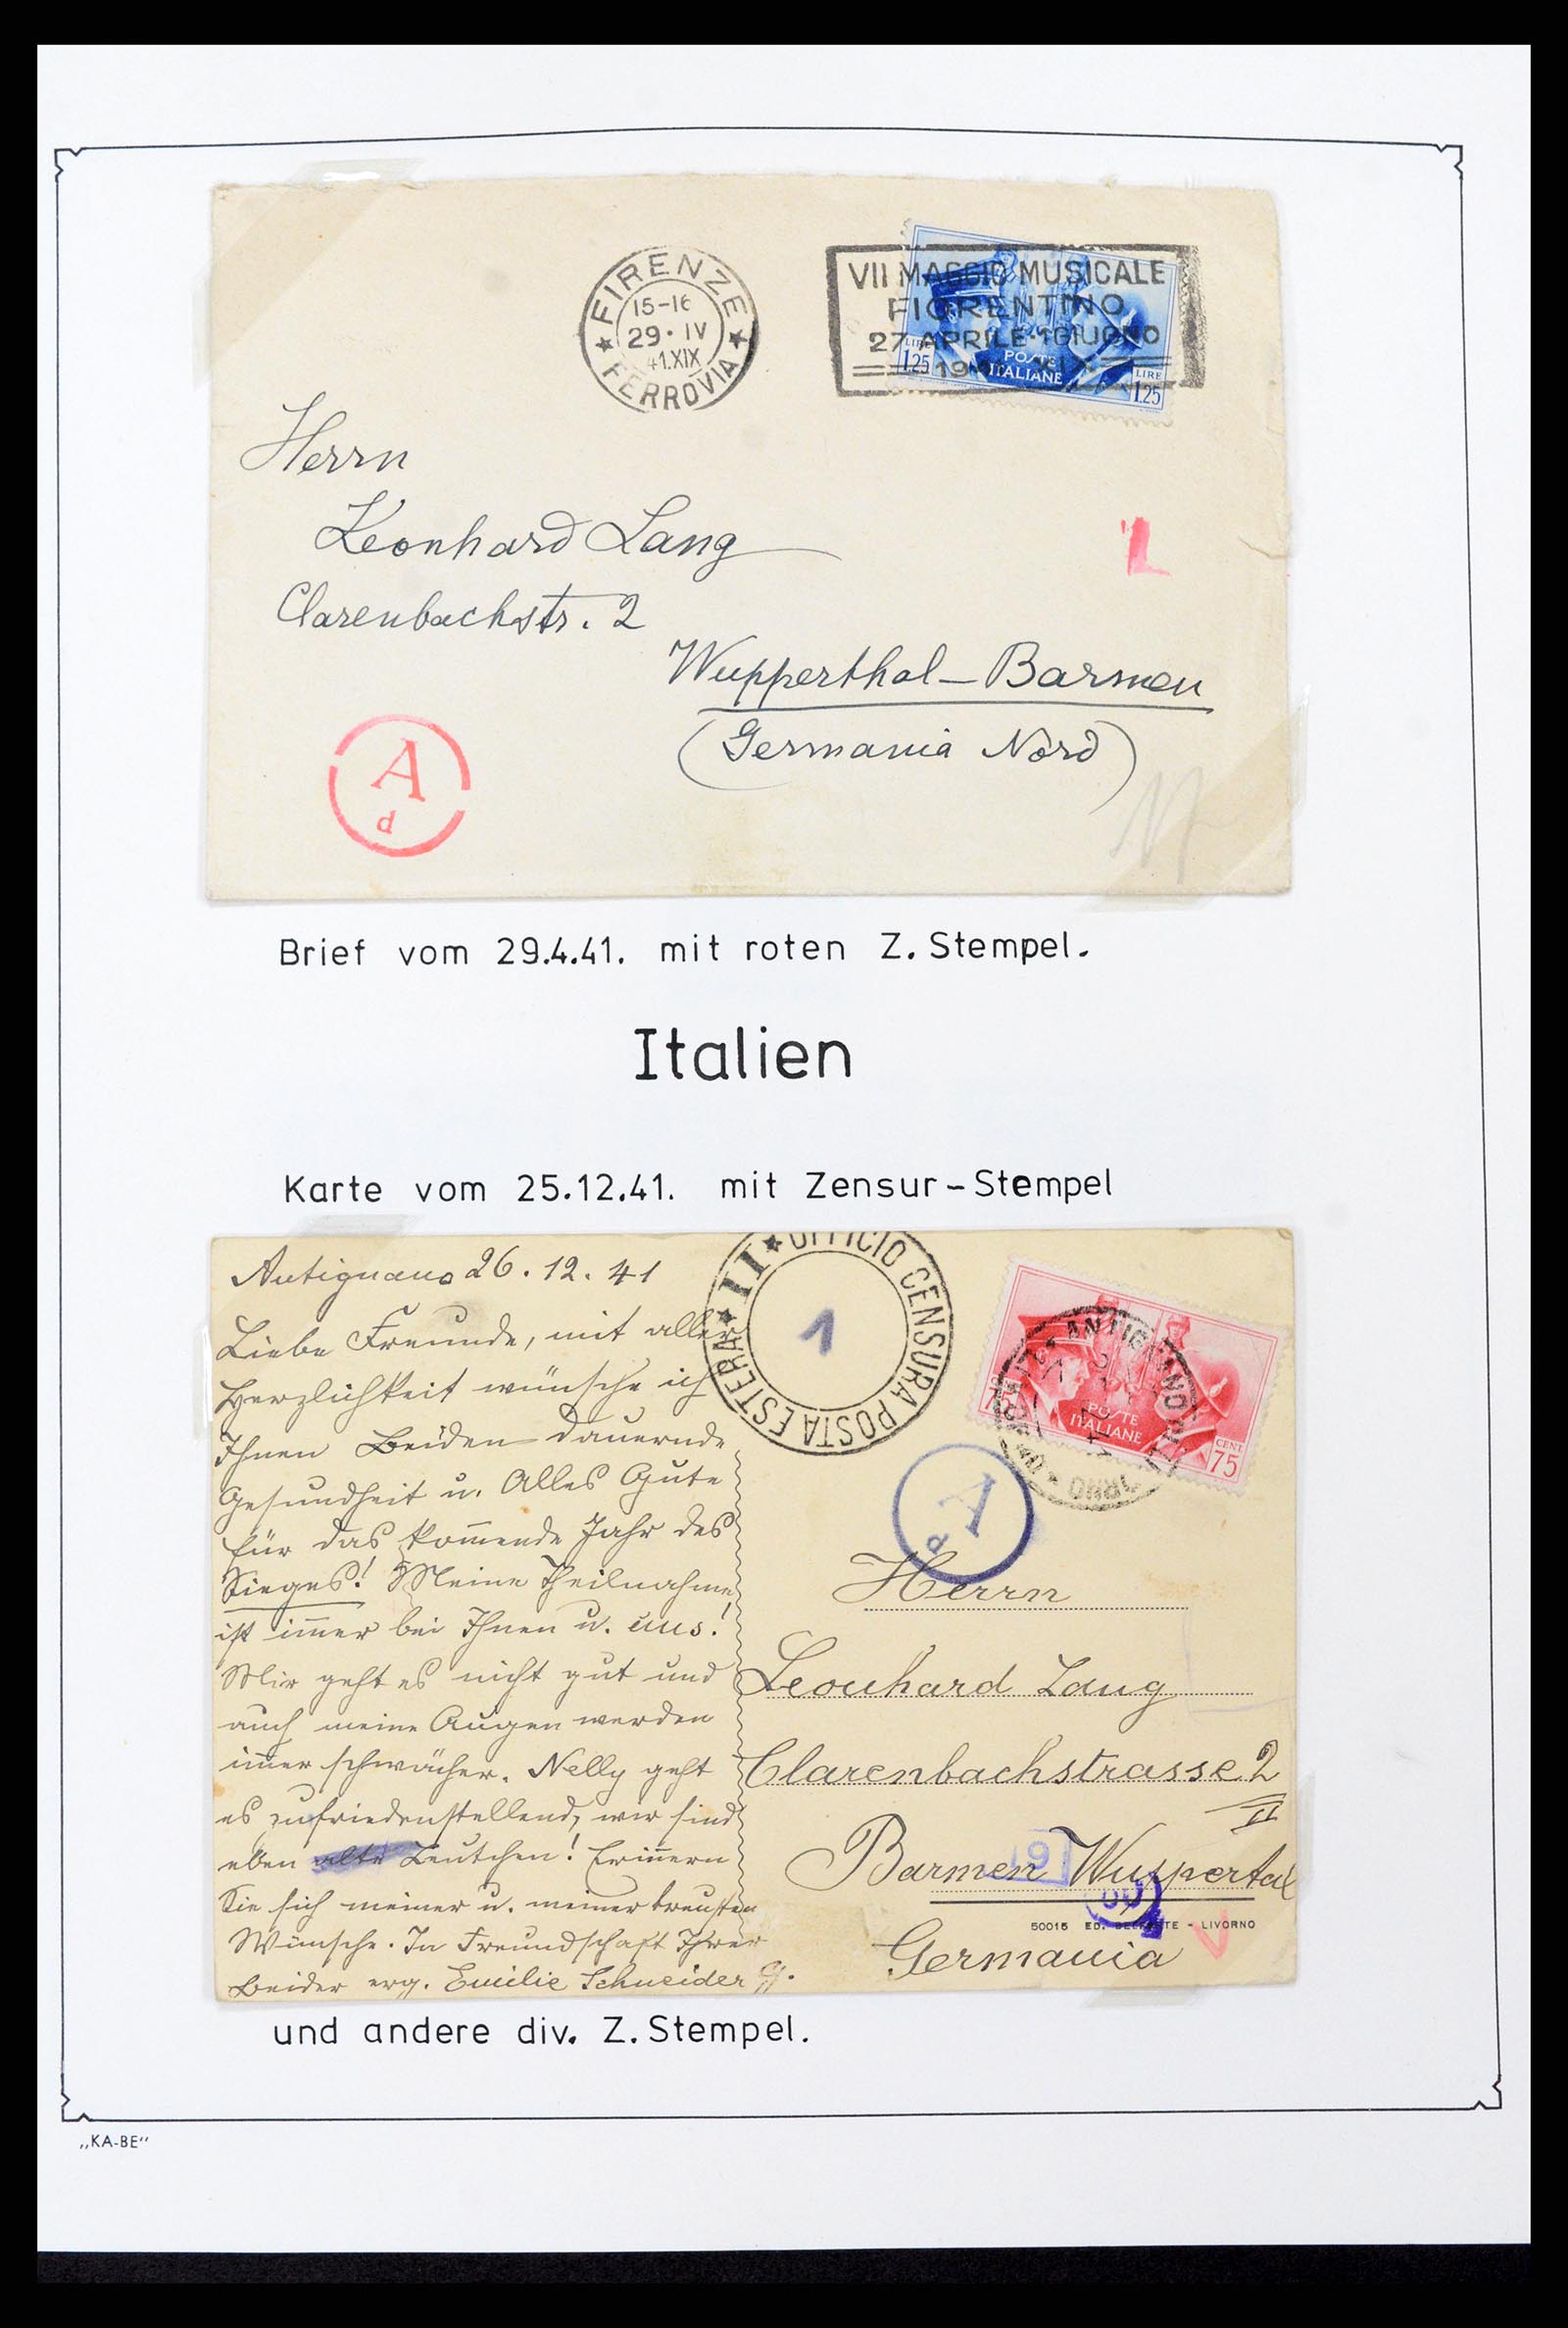 FIRENZE
15-16
29·IV
41.XIX
FERROVIA
VII MAGGIO MUSICALE
FIORENTINO
27 APRILE·1 GIUGNO
19
LIRE
1.25
POSTE
ITALIANE
LIRE
1.25
Herrn
Leonhard Lang
L
Clarenbachstr. 2
Wupperthal-Barmen
(Germania Nord)
A
d
Brief vom 29.4.41. mit roten Z. Stempel.
Italien
Karte vom 25.12.41. mit Zensur-Stempel
Antignano 26.12.41
Liebe Freunde, mit aller
Herzlichkeit wünsche ich
Ihnen Beiden dauernde
Gesundheit u. Alles Gute
für das kommende Jahr des
Sieges! Meine Theilnahme
ist immer bei Ihnen u. uns!
Mir geht es nicht gut und
auch meine Augen werden
immer schwächer. Nelly geht
es zufriedenstellend, wir sind
eben alte Leutchen! Erinnern
Sie sich meiner u. meiner treusten
Wünsche. In Freundschaft Ihrer
Beider erg. Emilie Schneider
II UFFICIO CENSURA POSTA ESTERA
1
ANTIGNANO
POSTE
ITALIANE
CENT
75
A
d
Herrn
Leonhard Lang
Clarenbachstrasse 2
II
Barmen Wuppertal
9
50015 ED. BELFORTE - LIVORNO
Germania
und andere div. Z. Stempel.
„KA-BE“